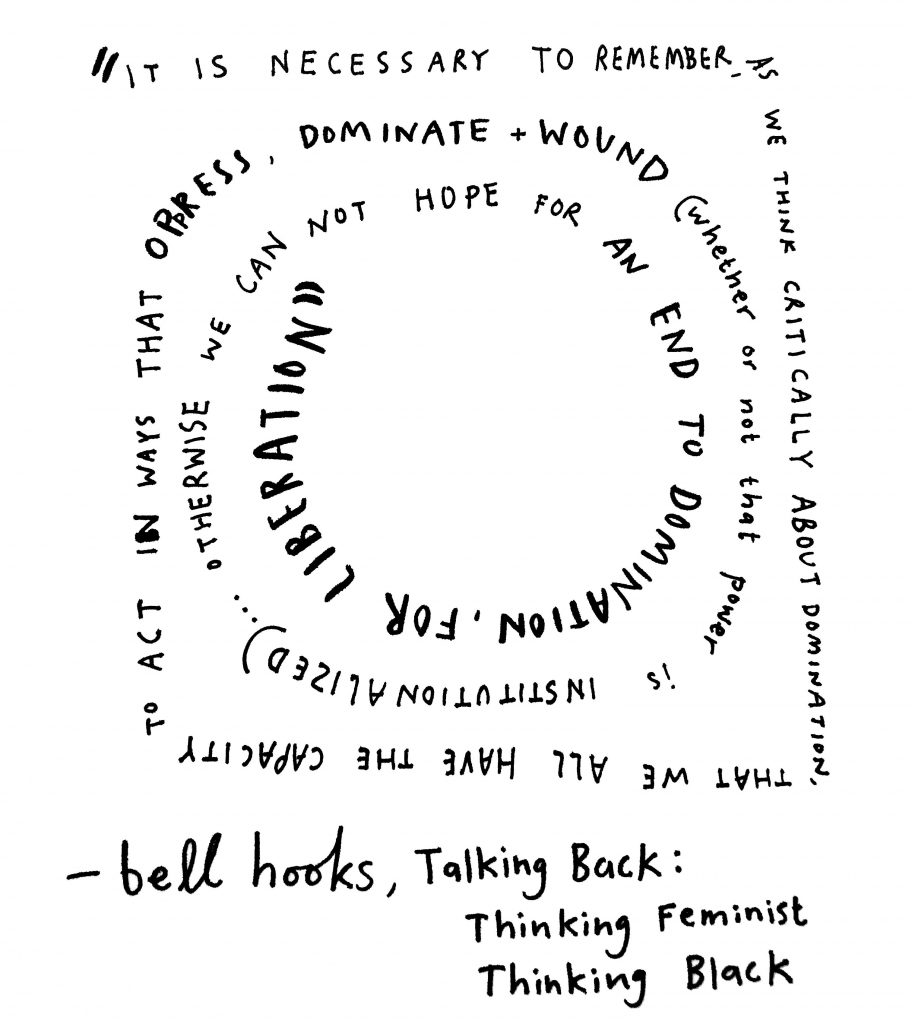 "IT IS NECESSARY TO REMEMBER, AS
WE THINK CRITICALLY ABOUT DOMINATION,
THAT WE ALL HAVE THE CAPACITY
TO ACT IN WAYS THAT OPPRESS, DOMINATE + WOUND
(whether or not that power
is INSTITUTIONALIZED)...
OTHERWISE WE CAN NOT HOPE FOR AN END TO DOMINATION, FOR LIBERATION"
- bell hooks, Talking Back:
Thinking Feminist
Thinking Black